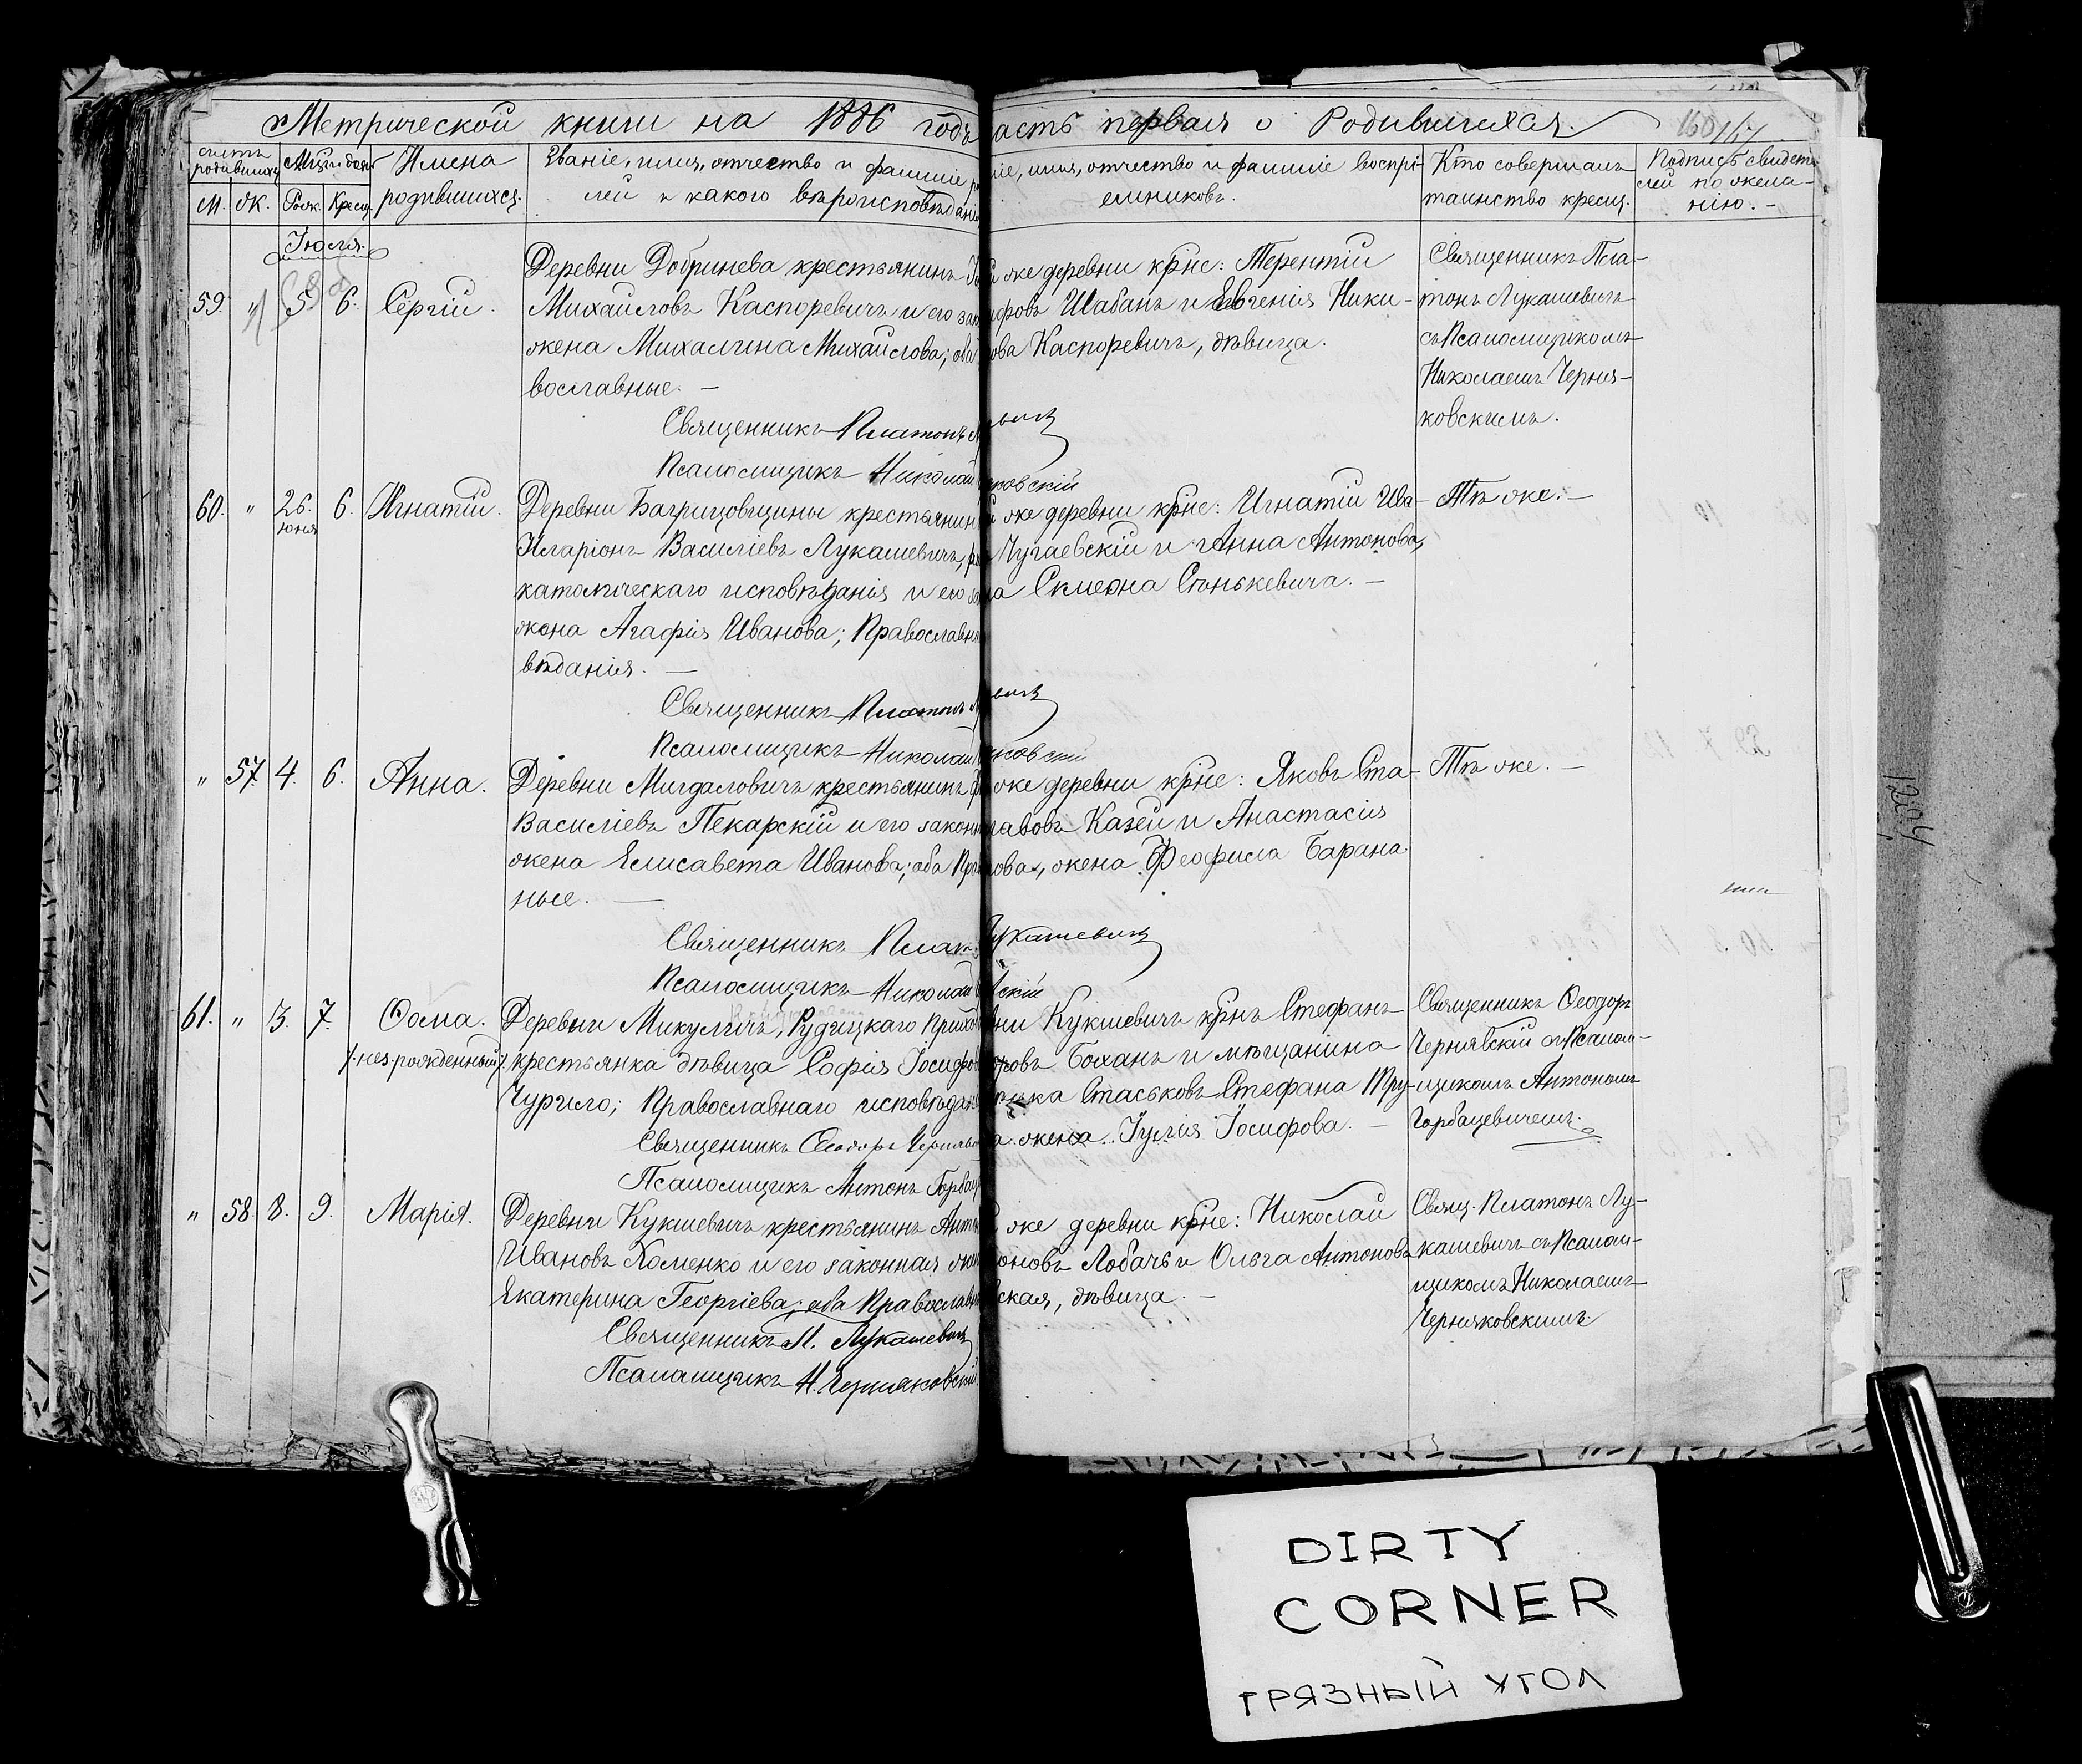 Метрической книги на 1886 годъ
асть первая о Родившихся.
160 167
счетъ родившихся
Мѣсяцъ и день
Имена родившихся.
Званіе, имя, отчество и фамиліе ро
лей и какого вѣроисповѣданія
іе, имя, отчество и фамиліе воспрі-
емниковъ.
Кто совершалъ
таинство крещ.
Подпись свидѣте
лей по жела-
нію. -
М. Ж. Рожд. Крещ.
Іюля.
59. " 5. 6. Сергій.
Деревни Добринева крестьянинъ
Михаиловъ Каспоревичъ и его зак
жена Михалина Михаилова; оба
вославные. -
Священникъ Платонъ
Псаломщикъ Николай
же деревни крне: Терентій
ифовъ Шабанъ и Евгенія Ники-
ова Каспоревичъ, дѣвица.
Священникъ Пла-
тонъ Лукашевичъ
съ Псаломщикомъ
Николаемъ Черня-
ковскимъ.
евичъ
яковскій
60. " 26. июня 6. Игнатій.
Деревни Багрицовщины крестьянинъ
Иларіонъ Василіевъ Лукашевичъ, р
католическаго исповѣданія и его за
жена Агафія Иванова; Православн
вѣданія. -
Священникъ Платонъ
Псаломщикъ Николай
же деревни крне: Игнатій Ива-
Чугаевскій и Анна Антонова,
на Симеона Сенькевича. -
Тѣ же. -
евичъ
яковскій
" 57. 4. 6. Анна.
Деревни Мигдаловичъ крестьянинъ
Василіевъ Пекарскій и его закон
жена Елисавета Иванова; оба Пра
ные. -
Священникъ Плат
Псаломщикъ Николай
же деревни крне: Яковъ Ста-
лавовъ Казей и Анастасія
нова, жена Феофила Барана
Тѣ же. -
Лукашевичъ
скій
61. " 3. 7. Ѳома.
(незрожденный)
Деревни Микуличъ, Рудицкаго Прихо
крестьянка дѣвица Софія Іосифо
Чурило; Православнаго исповѣдан
Священникъ Ѳеодоръ Черняв
Псаломщикъ Антонъ Горбац
вни Кукшевичъ крнъ Стефанъ
ровъ Боханъ и мѣщанина
Стаськовъ Стефана Тру-
а жена Іулія Іосифова. -
Священникъ Ѳеодоръ
Чернявскій съ Псалом-
щикомъ Антономъ
Горбацевичемъ.
" 58. 8. 9. Марія.
Деревни Кукшевичъ крестьянинъ Анто
Ивановъ Хоменко и его законная жен
Екатерина Георгіева; оба Православн
Священникъ П. Лукашевичъ
Псаломщикъ Н. Черняковскій
же деревни крне: Николай
оновъ Лобачъ и Ольга Антонова
ская, дѣвица. -
Свящ. Платонъ Лу-
кашевичъ съ Псалом-
щикомъ Николаемъ
Черняковскимъ
DIRTY
CORNER
ГРЯЗНЫЙ УГОЛ